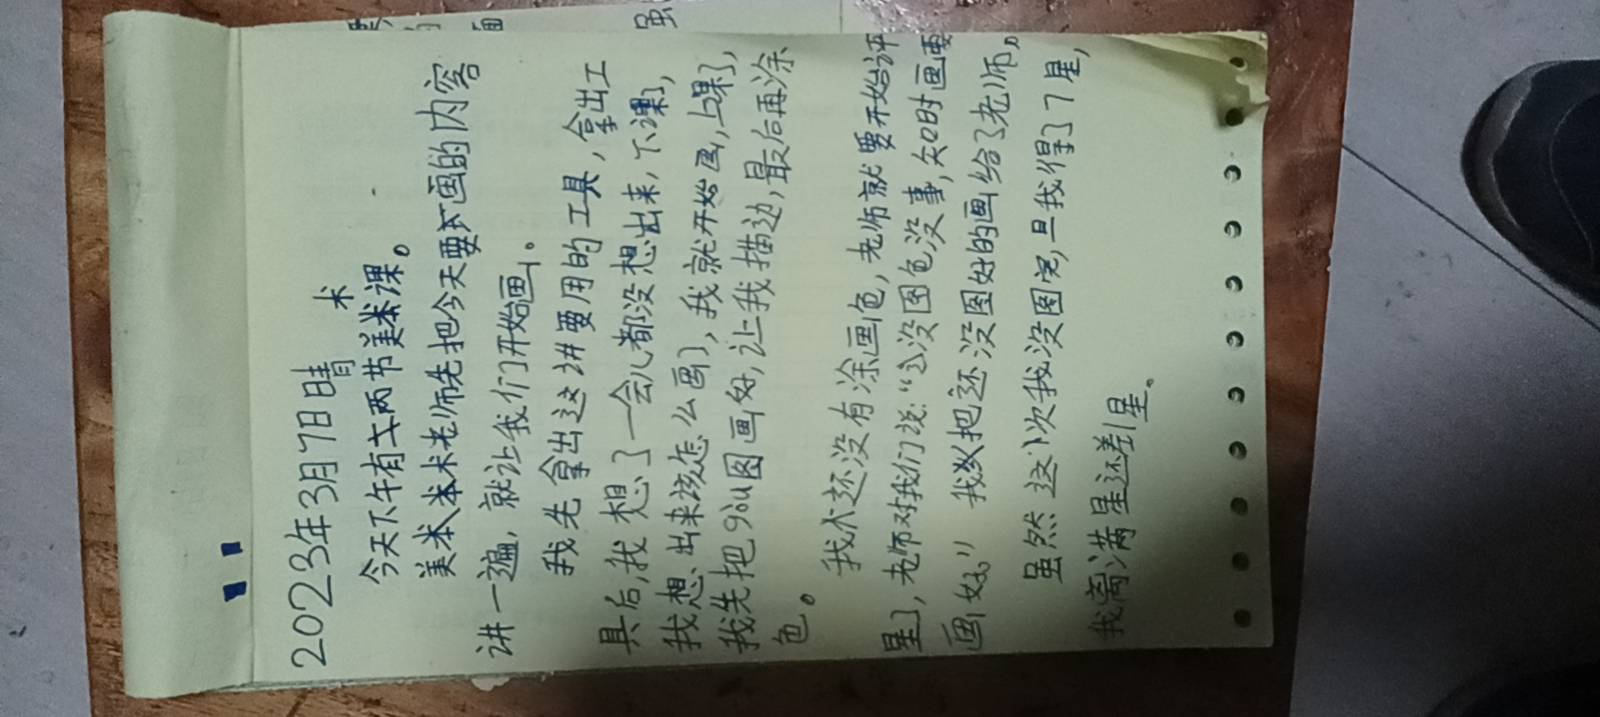 2023年3月7日晴
今天下午有两节美术课。
美术老师先把今天要画的内容
讲一遍，就让我们开始画。
我先拿出这讲要用的工具，拿出工
具后，我想了一会儿都没想出来，下课了，
我想出来该怎么画了，我就开始画，上课了，
我先把gòu图画好，让我描边，最后再涂
色。
我还没有涂画色，老师就要开始评
星了，老师对我们说：“没图色没事，关时画要
画好。” 我把还没图好的画给了老师。
虽然这次我没图完，旦我得了7星，
我离满星还差1星。